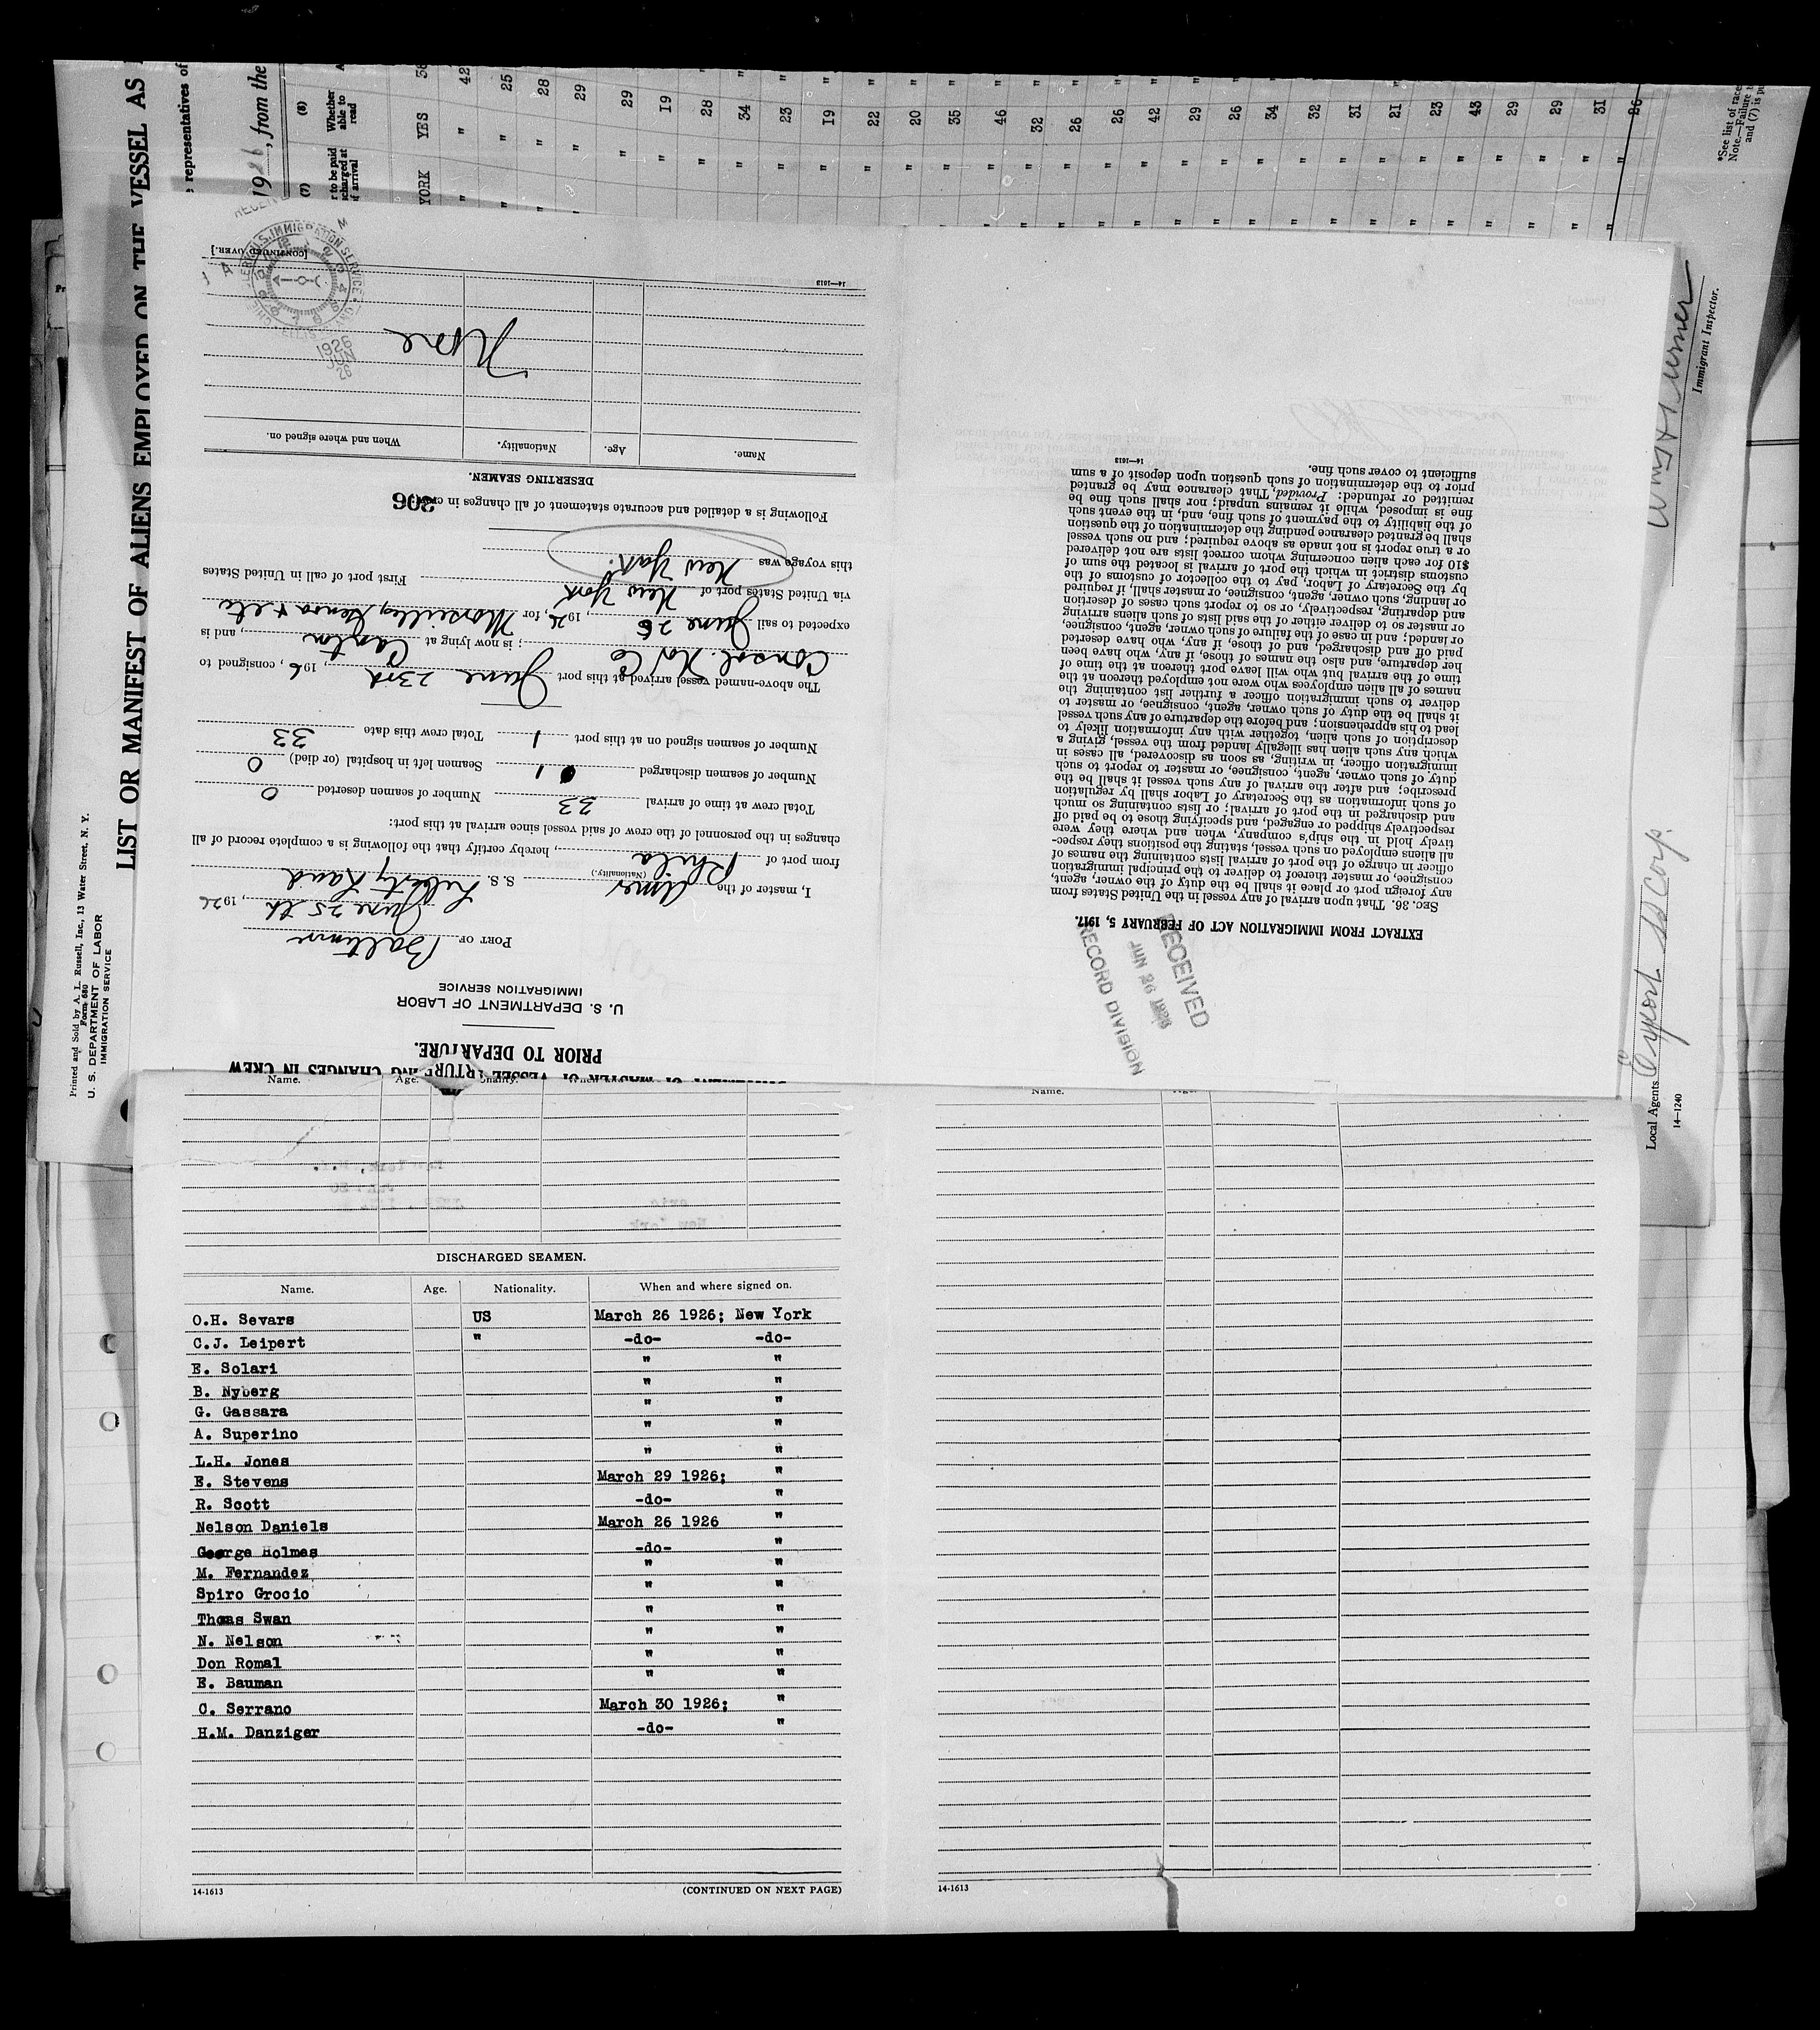 LIST OR MANIFEST OF ALIENS EMPLOYED ON THE VESSEL AS
Printed and Sold by A. L. Russell, Inc., 13 Water Street, N. Y.
Form 680
U. S. DEPARTMENT OF LABOR
IMMIGRATION SERVICE
representatives of
1926, from the
(7)
(8)
Whether able to read
YORK YES 38
" " 42
" " 25
" " 28
" " 29
" 29
" 19
" 28 "
" 34 "
" 23 "
" 19 "
" 22 "
" 20 "
" 35 "
" 46 "
" 32 "
" 26 "
" 26 "
" 42 "
" 29 "
" 26 "
" 34 "
" 32 "
" 31 "
" 21 "
" 23 "
" 43 "
" 29 "
" 29 "
" 31 "
" 26
*See list of race
Note.—Failure
and (7) is
Immigrant Inspector.
Local Agents Export SS Corp.
14—1240
PRIOR TO DEPARTURE.
U. S. DEPARTMENT OF LABOR
IMMIGRATION SERVICE
PORT OF Baltimore
June 25th, 1926
I, master of the Amer (Nationality.) S. S. Liberty Land
from port of Phila, hereby certify that the following is a complete record of all
changes in the personnel of the crew of said vessel since arrival at this port:
Total crew at time of arrival 33 Number of seamen deserted 0
Number of seamen discharged 1 Seamen left in hospital (or died) 0
Number of seamen signed on at this port 1 Total crew this date 33
The above-named vessel arrived at this port June 23rd, 1926, consigned to
Consol. Co; is now lying at Canton, and is
expected to sail June 26, 1926, for Marseilles, Genoa + etc
via United States port of New York First port of call in United States
this voyage was New York.
Following is a detailed and accurate statement of all changes in crew:
206
DESERTING SEAMEN.
Name. Age. Nationality. When and where signed on.
None
14—1613
[CONTINUED OVER.]
1926
JUN
26
EXTRACT FROM IMMIGRATION ACT OF FEBRUARY 5, 1917.
SEC. 36. That upon arrival of any vessel in the United States from
any foreign port or place it shall be the duty of the owner, agent,
consignee, or master thereof to deliver to the principal immigration
officer in charge of the port of arrival lists containing the names of
all aliens employed on such vessel, stating the positions they respec-
tively hold in the ship's company, when and where they were
respectively shipped or engaged, and specifying those to be paid off
and discharged in the port of arrival; or lists containing so much
of such information as the Secretary of Labor shall by regulation
prescribe; and after the arrival of any such vessel it shall be the
duty of such owner, agent, consignee, or master to report to such
immigration officer, in writing, as soon as discovered, all cases in
which any such alien has illegally landed from the vessel, giving a
description of such alien, together with any information likely to
lead to his apprehension; and before the departure of any such vessel
it shall be the duty of such owner, agent, consignee, or master to
deliver to such immigration officer a further list containing the
names of all alien employees who were not employed thereon at the
time of the arrival but who will leave port thereon at the time of
her departure, and also the names of those, if any, who have been
paid off and discharged, and of those, if any, who have deserted
or landed; and in case of the failure of such owner, agent, consignee,
or master so to deliver either of the said lists of such aliens arriving
and departing, respectively, or so to report such cases of desertion
or landing, such owner, agent, consignee, or master shall, if required
by the Secretary of Labor, pay to the collector of customs of the
customs district in which the port of arrival is located the sum of
$10 for each alien concerning whom correct lists are not delivered
or a true report is not made as above required; and no such vessel
shall be granted clearance pending the determination of the question
of the liability to the payment of such fine, and, in the event such
fine is imposed, while it remains unpaid; nor shall such fine be
remitted or refunded: Provided, That clearance may be granted
prior to the determination of such question upon deposit of a sum
sufficient to cover such fine.
14—1613
RECEIVED
JUN 26 1926
RECORD DIVISION
Name. Age.
DISCHARGED SEAMEN.
Name. Age. Nationality. When and where signed on.
O.H. Sevars US March 26 1926; New York
C.J. Leipert " -do- -do-
E. Solari " "
B. Nyberg " "
G. Gassara " "
A. Superino " "
L.H. Jones " "
E. Stevens March 29 1926; "
R. Scott -do- "
Nelson Daniels March 26 1926 "
George Holmes -do- "
M. Fernandez " "
Spiro Grocio " "
Thomas Swan " "
N. Nelson " "
Don Romal " "
E. Bauman " "
C. Serrano March 30 1926; "
H.M. Danziger -do- "
14-1613
(CONTINUED ON NEXT PAGE)
Name.
14-1613